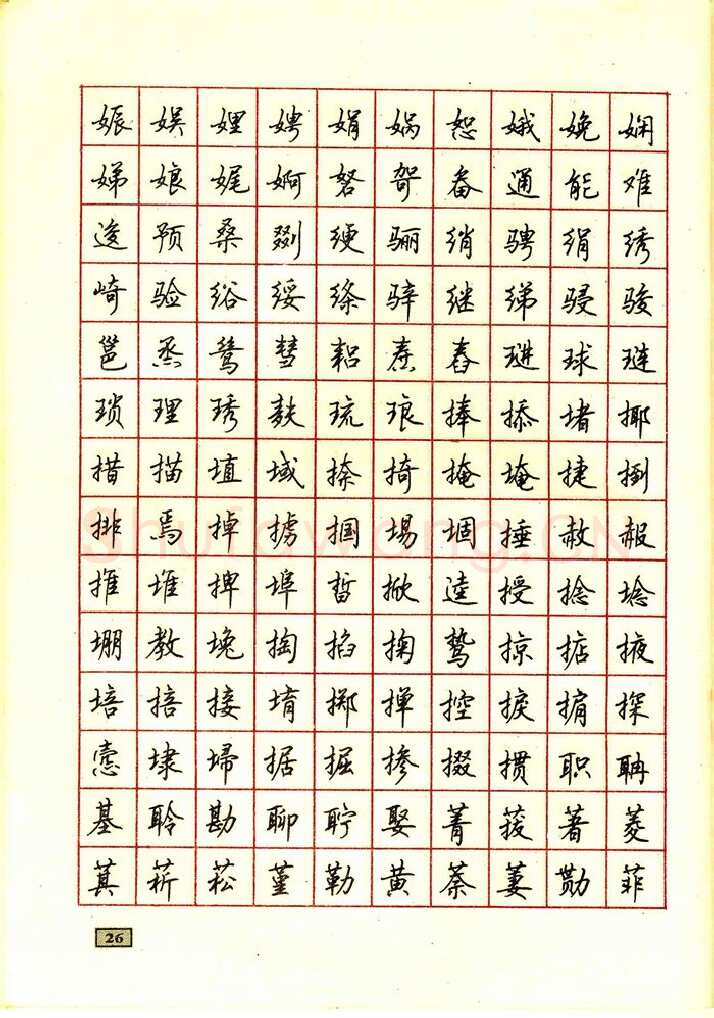 娠 娱 娌 娉 娟 娲 恕 娥 娩 娴
娣 娘 娓 婀 砮 哿 畚 通 能 难
逡 预 桑 剟 绠 骊 绡 骋 绢 绣
崎 验 绤 绥 绦 骍 继 绨 骎 骏
邕 烝 鸶 彗 耜 焘 舂 琎 球 琏
琐 理 琇 麸 琉 琅 捧 掭 堵 揶
措 描 埴 域 捺 掎 掩 埯 捷 捯
排 焉 掉 掳 掴 埸 堌 捶 赦 赧
推 堆 捭 埠 晢 掀 逵 授 捻 埝
堋 教 堍 掏 掐 掬 鸷 掠 掂 掖
培 掊 接 堉 掷 掸 控 捩 掮 探
悫 埭 埽 据 掘 掺 掇 掼 职 聃
基 聆 勘 聊 聍 娶 菁 菝 著 菱
萁 菥 菘 堇 勒 黄 萘 萋 勚 菲
26
Shufawang.CN